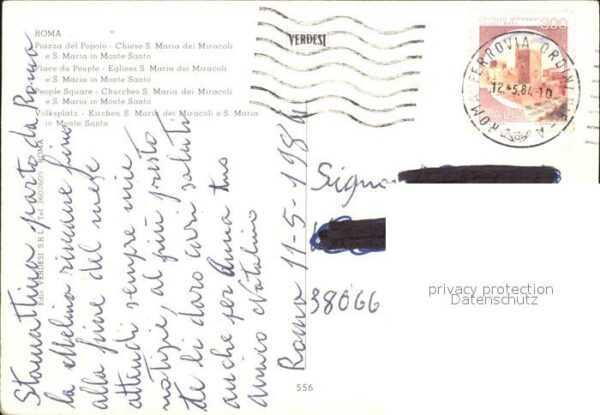 ROMA
Piazza del Popolo - Chiese S. Maria dei Miracoli
e S. Maria in Monte Santo
Place du Peuple - Eglises S. Maria dei Miracoli
e S. Maria in Monte Santo
People Square - Churches S. Maria dei Miracoli
e S. Maria in Monte Santo
Volksplatz - Kirchen S. Maria dei Miracoli e S. Maria
in Monte Santo
VERDESI
300
ROMA FERROVIA
12-5.84-10
Stamattina parto da Roma
la rimane fino
alla fine del mese
attendi sempre mie
notizie, al più presto
te li darò cari saluti
anche per Anna tuo
amico Natalino
Roma 11-5-1984
Edit. VERDESI S.R.L. Tel. ROMA
Signor
38066
privacy protection
Datenschutz
556